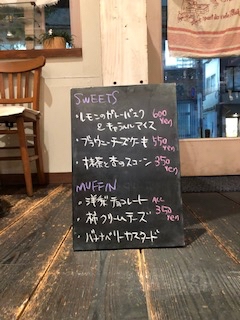 SWEETS
・レモンのガトーバスク 600 yen
&キャラメルアイス
・ブラウニーチーズケーキ 550 yen
・抹茶と杏のスコーン 350 yen
MUFFIN
・洋梨チョコレート ALL
・柿クリームチーズ 350 yen
・バナナベリーカスタード